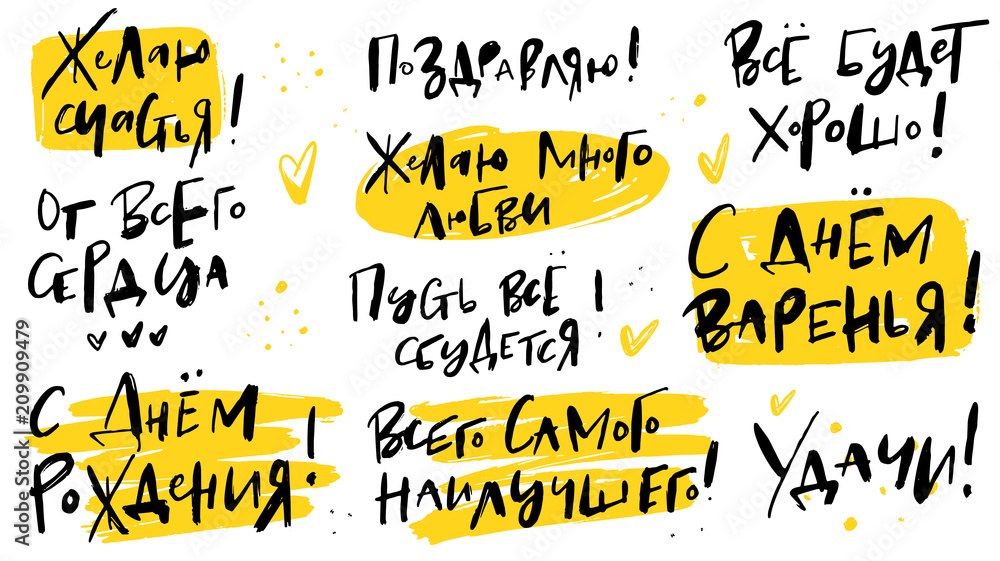 Желаю
счастья!
От всего
сердца
С Днём
рождения!
Поздравляю!
Желаю много
любви
Пусть всё
сбудется!
Всего самого
наилучшего!
Всё будет
хорошо!
С Днём
Варенья!
Удачи!
209909479
Adobe Stock